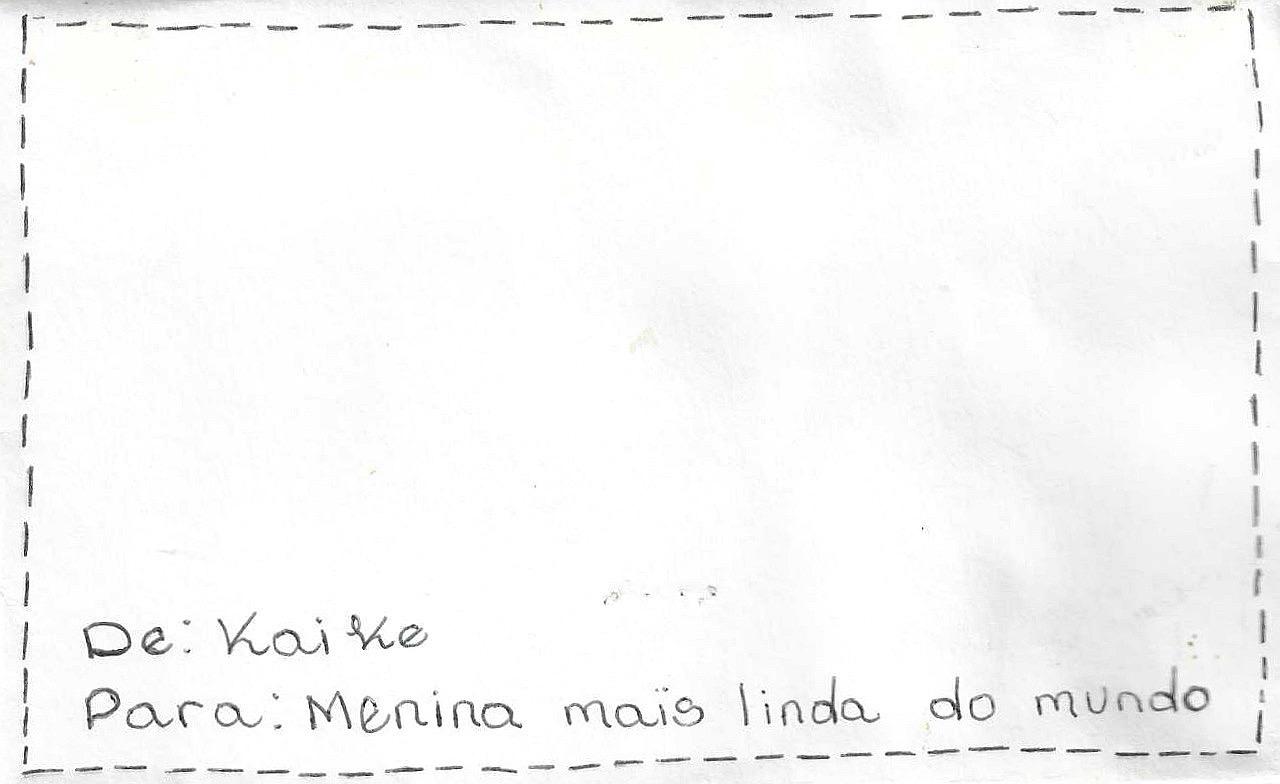 De: Kaike
Para: Menina mais linda do mundo